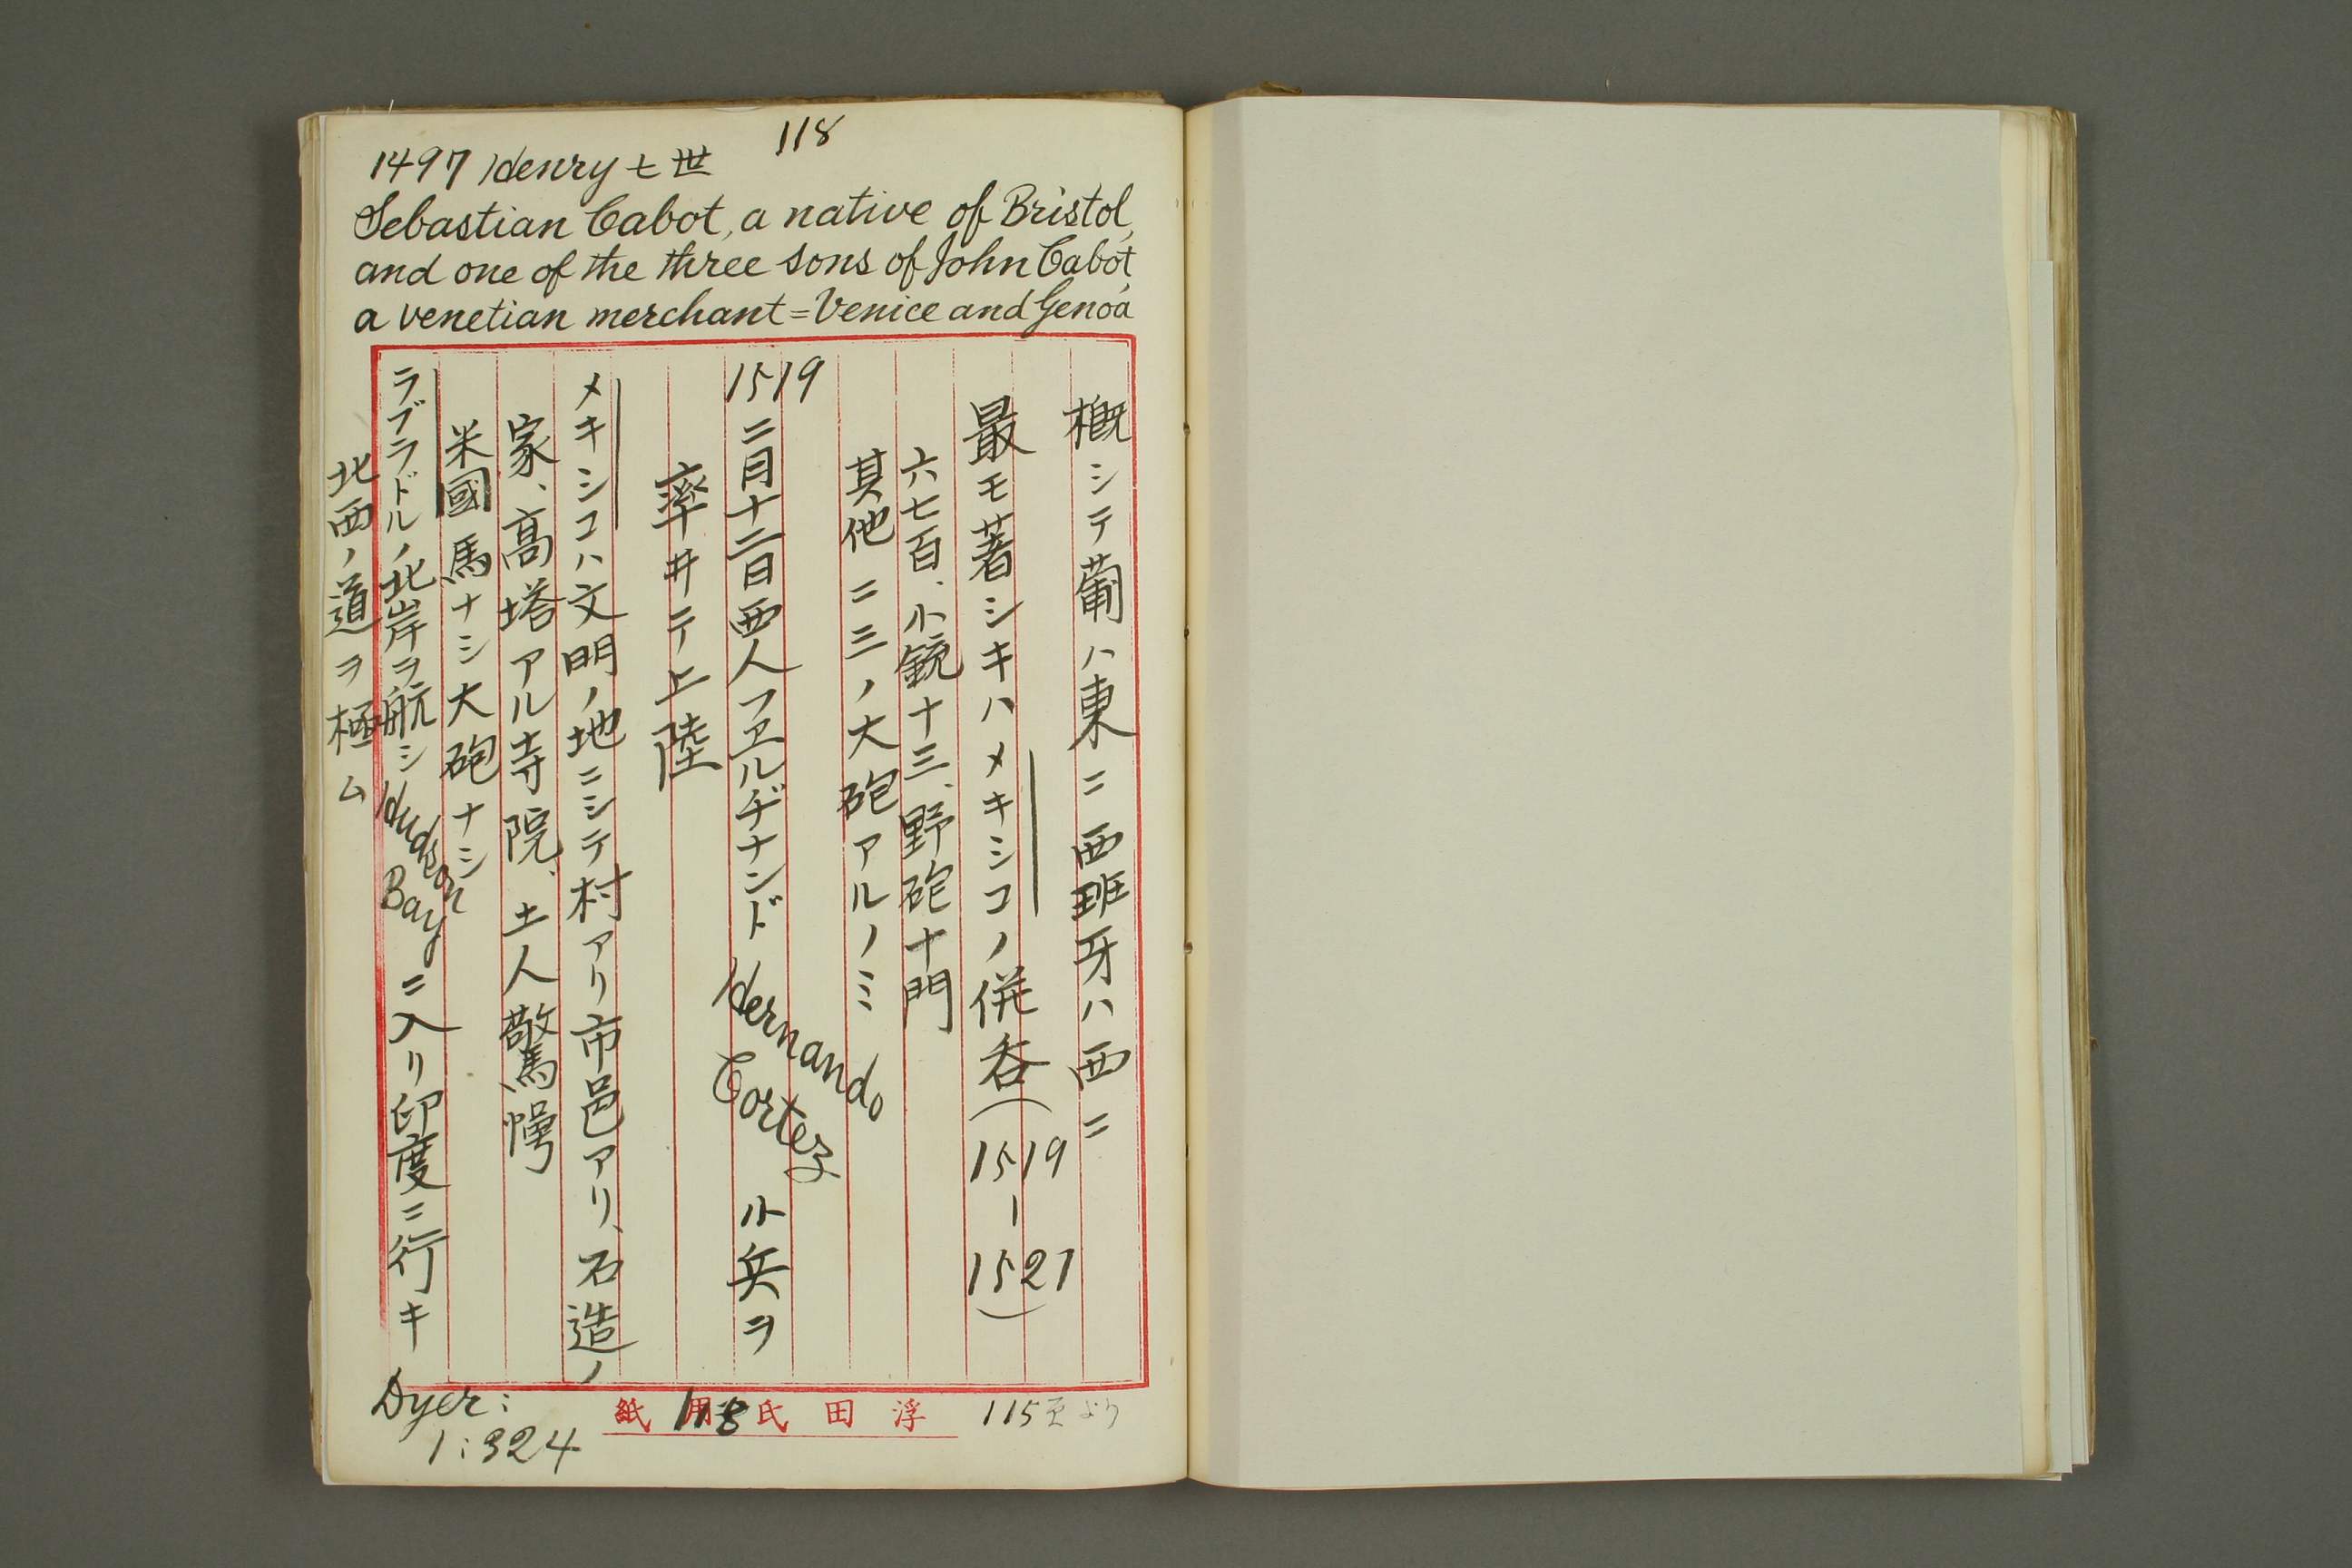 118
1497 Henry七世
Sebastian Cabot, a native of Bristol,
and one of the three sons of John Cabot,
a venetian merchant = Venice and Genoa
概シテ葡ハ東ニ西班牙ハ西ニ
最モ著シキハメキシコノ併呑(1519-1521)
六七百、小銃十三、野砲十門
其他ニ三ノ大砲アルノミ
1519 二月十二日西人フェルヂナンド Hernando Cortez 小兵ヲ
率井テ上陸
メキシコハ文明ノ地ニシテ村アリ市邑アリ、石造ノ
家、高塔アル寺院、土人驚愕
米國馬ナシ大砲ナシ
ラブラドルノ北岸ヲ航シ Hudson Bay ニ入リ印度ニ行キ
北西ノ道ヲ極ム
Dyer:
1:324
浮田氏用紙
118
115頁より